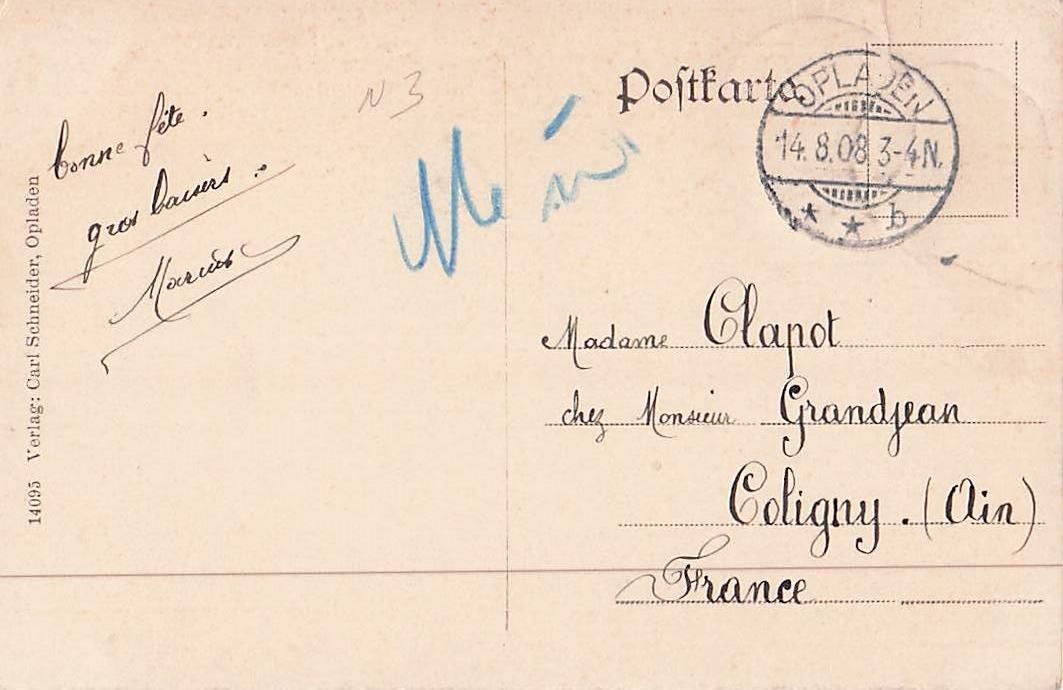 Postkarte
OPLADEN
14.8.08 3-4N.
* * b
N 3
bonne fête.
gros baisers.
Marius
Madame Clapot
chez Monsieur Grandjean
Coligny. (Ain)
France
14095 Verlag: Carl Schneider, Opladen